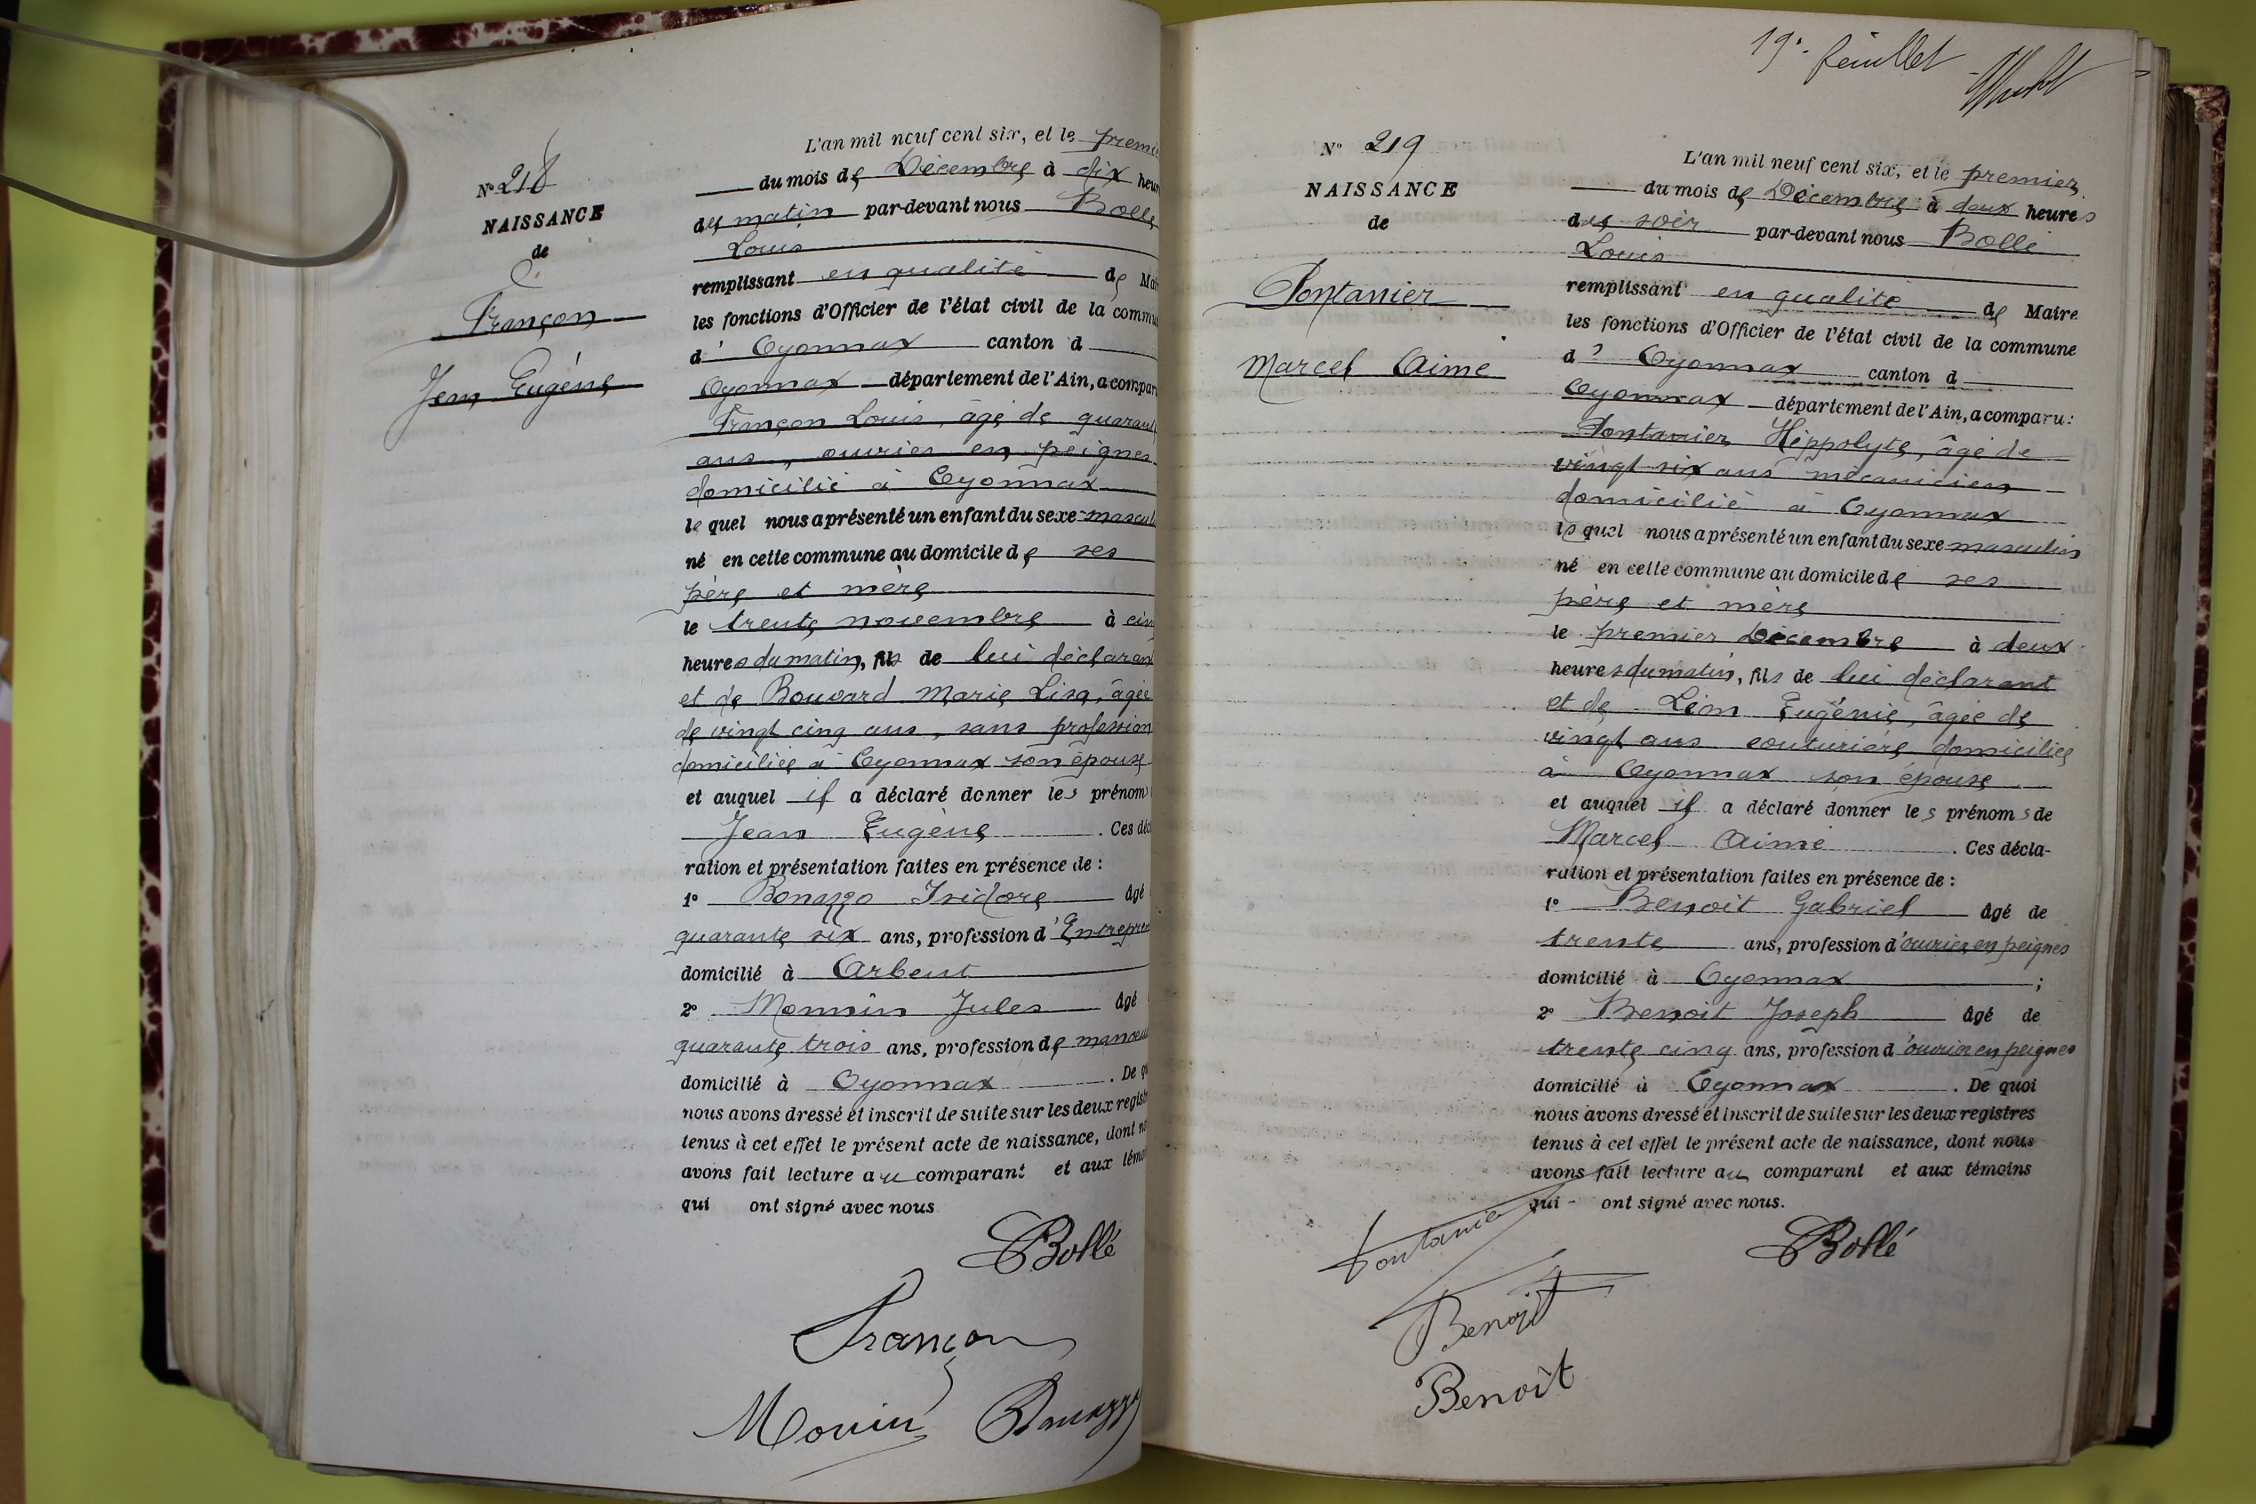 N° 218
NAISSANCE
de
Françon
Jean Eugène
L'an mil neuf cent six, et le premie
du mois de Décembre à dix heur
du matin par-devant nous Bollé
Louis
remplissant en qualité de Mai
les fonctions d'Officier de l'état civil de la commu
d' Oyonnax canton d
Oyonnax département de l'Ain, a compar
Françon Louis, âgé de quarant
ans, ouvrier en peignes
domicilié à Oyonnax
lequel nous a présenté un enfant du sexe mascul
né en cette commune au domicile de ses
père et mère
le trente novembre à cin
heures du matin, fils de lui déclarant
et de Bouvard Marie Lisa, âgée
de vingt cinq ans, sans profession
domiciliée à Oyonnax son épouse
et auquel il a déclaré donner les prénom
Jean Eugène. Ces décl
ration et présentation faites en présence de :
1° Bonazzo Isidore âgé
quarante six ans, profession d'Entrepren
domicilié à Arbent
2° Monnin Jules âgé
quarante trois ans, profession de manoeu
domicilié à Oyonnax. De qu
nous avons dressé et inscrit de suite sur les deux regist
tenus à cet effet le présent acte de naissance, dont no
avons fait lecture au comparant et aux témoi
qui ont signé avec nous
Bollé
Françon
Monin Bonazzo
19e feuillet
N° 219
NAISSANCE
de
Fontanier
Marcel Aimé
L'an mil neuf cent six, et le premier
du mois de Décembre à deux heures
du soir par-devant nous Bollé
Louis
remplissant en qualité de Maire
les fonctions d'Officier de l'état civil de la commune
d' Oyonnax canton d
Oyonnax département de l'Ain, a comparu :
Fontanier Hippolyte, âgé de
vingt six ans mécanicien
domicilié à Oyonnax
lequel nous a présenté un enfant du sexe masculin
né en cette commune au domicile de ses
père et mère
le premier Décembre à deux
heures du matin, fils de lui déclarant
et de Léon Eugénie, âgée de
vingt ans couturière domiciliée
à Oyonnax son épouse
et auquel il a déclaré donner les prénoms de
Marcel Aimé. Ces décla-
ration et présentation faites en présence de :
1° Benoit Gabriel âgé de
trente ans, profession d'ouvrier en peignes
domicilié à Oyonnax ;
2° Benoit Joseph âgé de
trente cinq ans, profession d'ouvrier en peignes
domicilié à Oyonnax. De quoi
nous avons dressé et inscrit de suite sur les deux registres
tenus à cet effet le présent acte de naissance, dont nous
avons fait lecture au comparant et aux témoins
qui ont signé avec nous.
Fontanier
Bollé
Benoît
Benoît